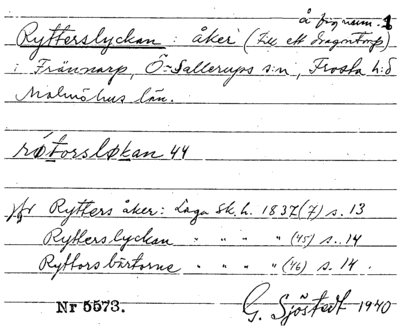 å fig num. 1
Rytterslyckan : åker (till ett dragontorp)
i Frännarp, Ö-Sallerups s:n, Frosta h:d
Malmöhus län.
rótorsløkan 44
jfr Rytters åker: Laga sk.h. 1837(7) s. 13
Rytterslyckan " " " " (45) s. 14
Ryttors bärtorne " " " " (46) s. 14.
Nr 5573. G. Sjöstedt 1940